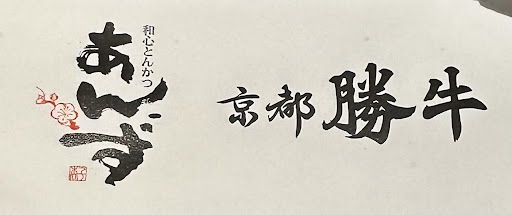 和心とんかつ
あんず
京都勝牛